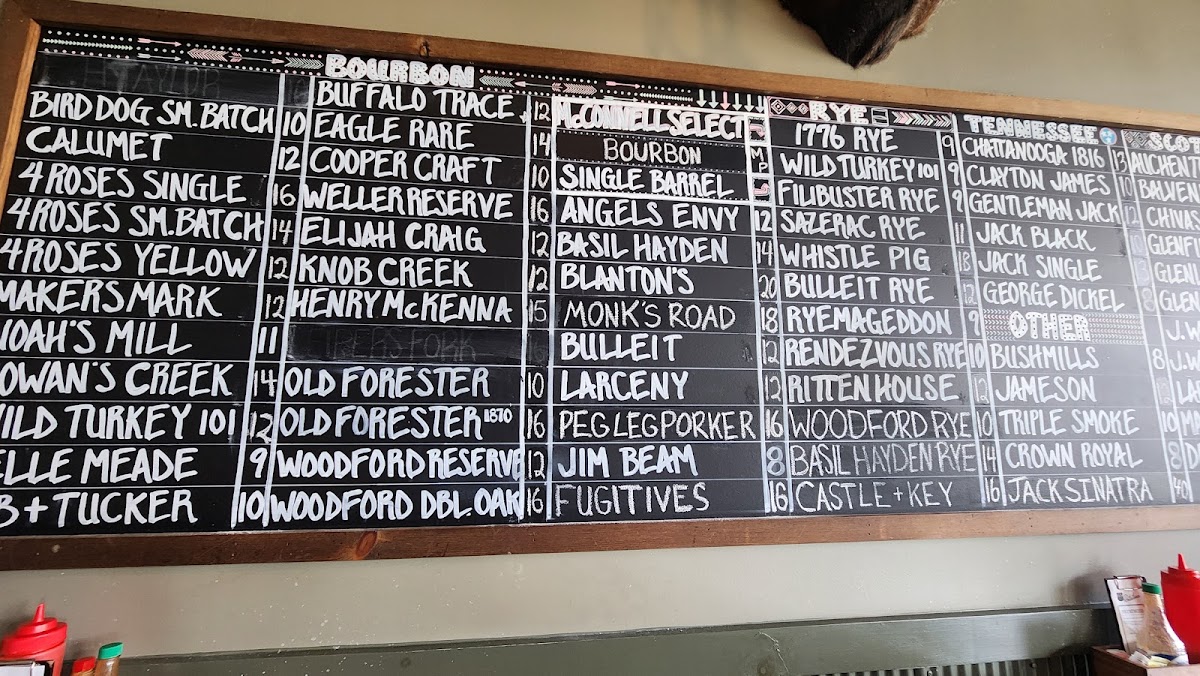 BOURBON
BIRD DOG SM. BATCH 10
CALUMET 12
4 ROSES SINGLE 16
4 ROSES SM. BATCH 14
4 ROSES YELLOW 12
MAKERS MARK 12
NOAH'S MILL 11
OWAN'S CREEK 14
WILD TURKEY 101 12
ELLE MEADE 9
B + TUCKER 10
BUFFALO TRACE 12
EAGLE RARE 14
COOPER CRAFT 10
WELLER RESERVE 16
ELIJAH CRAIG 12
KNOB CREEK 12
HENRY McKENNA 15
OLD FORESTER 10
OLD FORESTER 1870 16
WOODFORD RESERVE 12
WOODFORD DBL OAK 16
McCONNELL SELECT
BOURBON
SINGLE BARREL
ANGELS ENVY 12
BASIL HAYDEN 14
BLANTON'S 20
MONK'S ROAD 18
BULLEIT 12
LARCENY 12
PEG LEG PORKER 16
JIM BEAM 8
FUGITIVES 16
RYE
1776 RYE 9
WILD TURKEY 101 9
FILIBUSTER RYE 9
SAZERAC RYE 11
WHISTLE PIG 18
BULLEIT RYE 12
RYEMAGEDDON 9
RENDEZVOUS RYE 10
RITTEN HOUSE 12
WOODFORD RYE 10
BASIL HAYDEN RYE 14
CASTLE + KEY 16
TENNESSEE
CHATTANOOGA 1816 13
CLAYTON JAMES 10
GENTLEMAN JACK 12
JACK BLACK 10
JACK SINGLE
GEORGE DICKEL 8
OTHER
BUSHMILLS 8
JAMESON
TRIPLE SMOKE 10
CROWN ROYAL 8
JACK SINATRA 40
SCOT
AUCHENT
BALVEN
CHIVAS
GLENF
GLENL
GLEN
J.W
J.W
LA